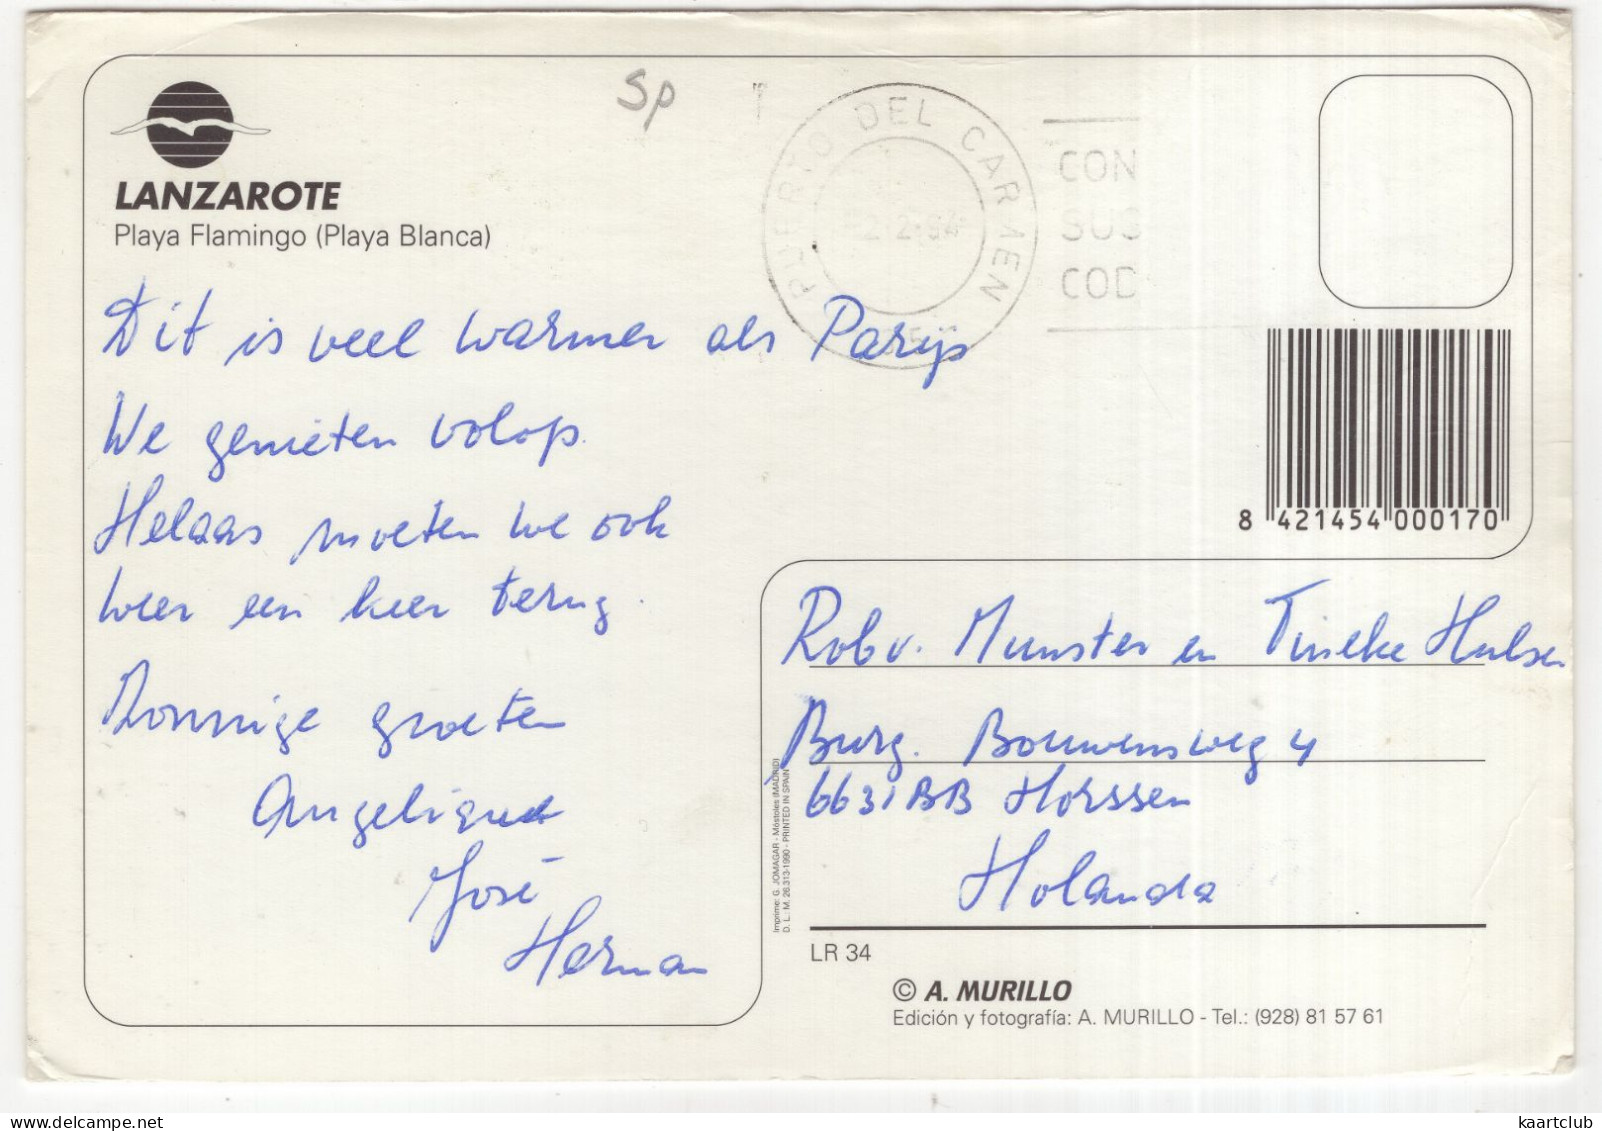 Sp
PUERTO DEL CARMEN
2·2·94
CON
SUS
COD
LANZAROTE
Playa Flamingo (Playa Blanca)
Dit is veel warmer als Parijs
We genieten volop.
Helaas moeten we ook
weer een keer terug.
Zonnige groeten
Angelique
José
Herman
8 421454 000170
Rob v. Munster en Tineke Hulsen
Burg. Bouwensweg 4
6631 BB Horssen
Holanda
Imprime: G. JOMAGAR - Móstoles (MADRID)
D. L.: M. 26.313-1990 - PRINTED IN SPAIN
LR 34
© A. MURILLO
Edición y fotografía: A. MURILLO - Tel.: (928) 81 57 61
kaartclub